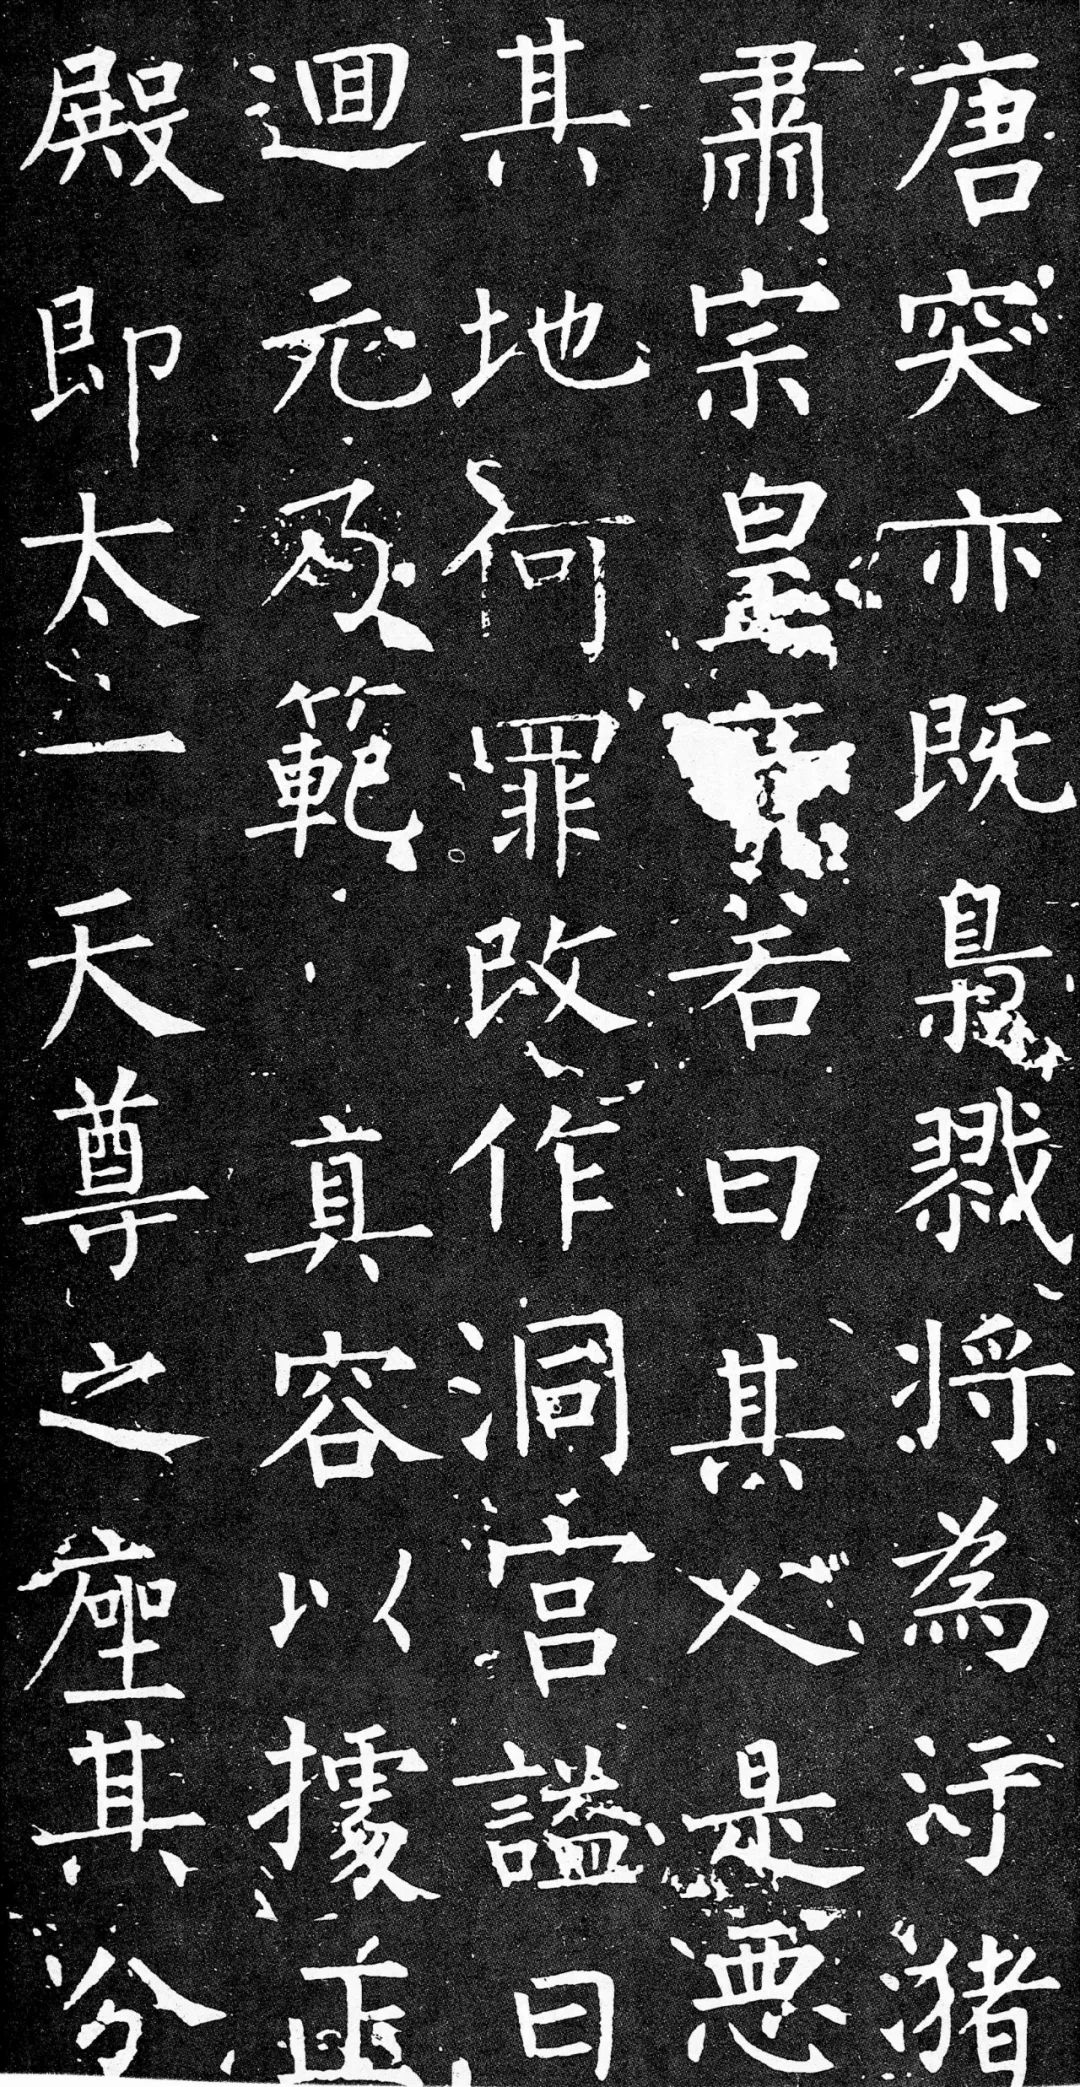 唐突亦既梟戮将為汙猪
肅宗皇帝若曰其人是惡
其地何罪改作洞宮謚曰
迴元乃範真容以據正
殿即太一天尊之座其分